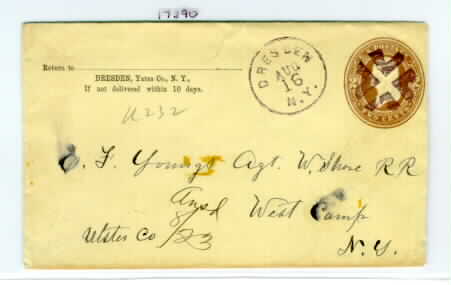 17290
Return to
DRESDEN, Yates Co., N. Y.,
If not delivered within 10 days.
DRESDEN
AUG
16
N.Y.
U232
E. F. Young Agt. W. Shore R R
Ansd West Camp
8/23
Ulster Co
N. Y.